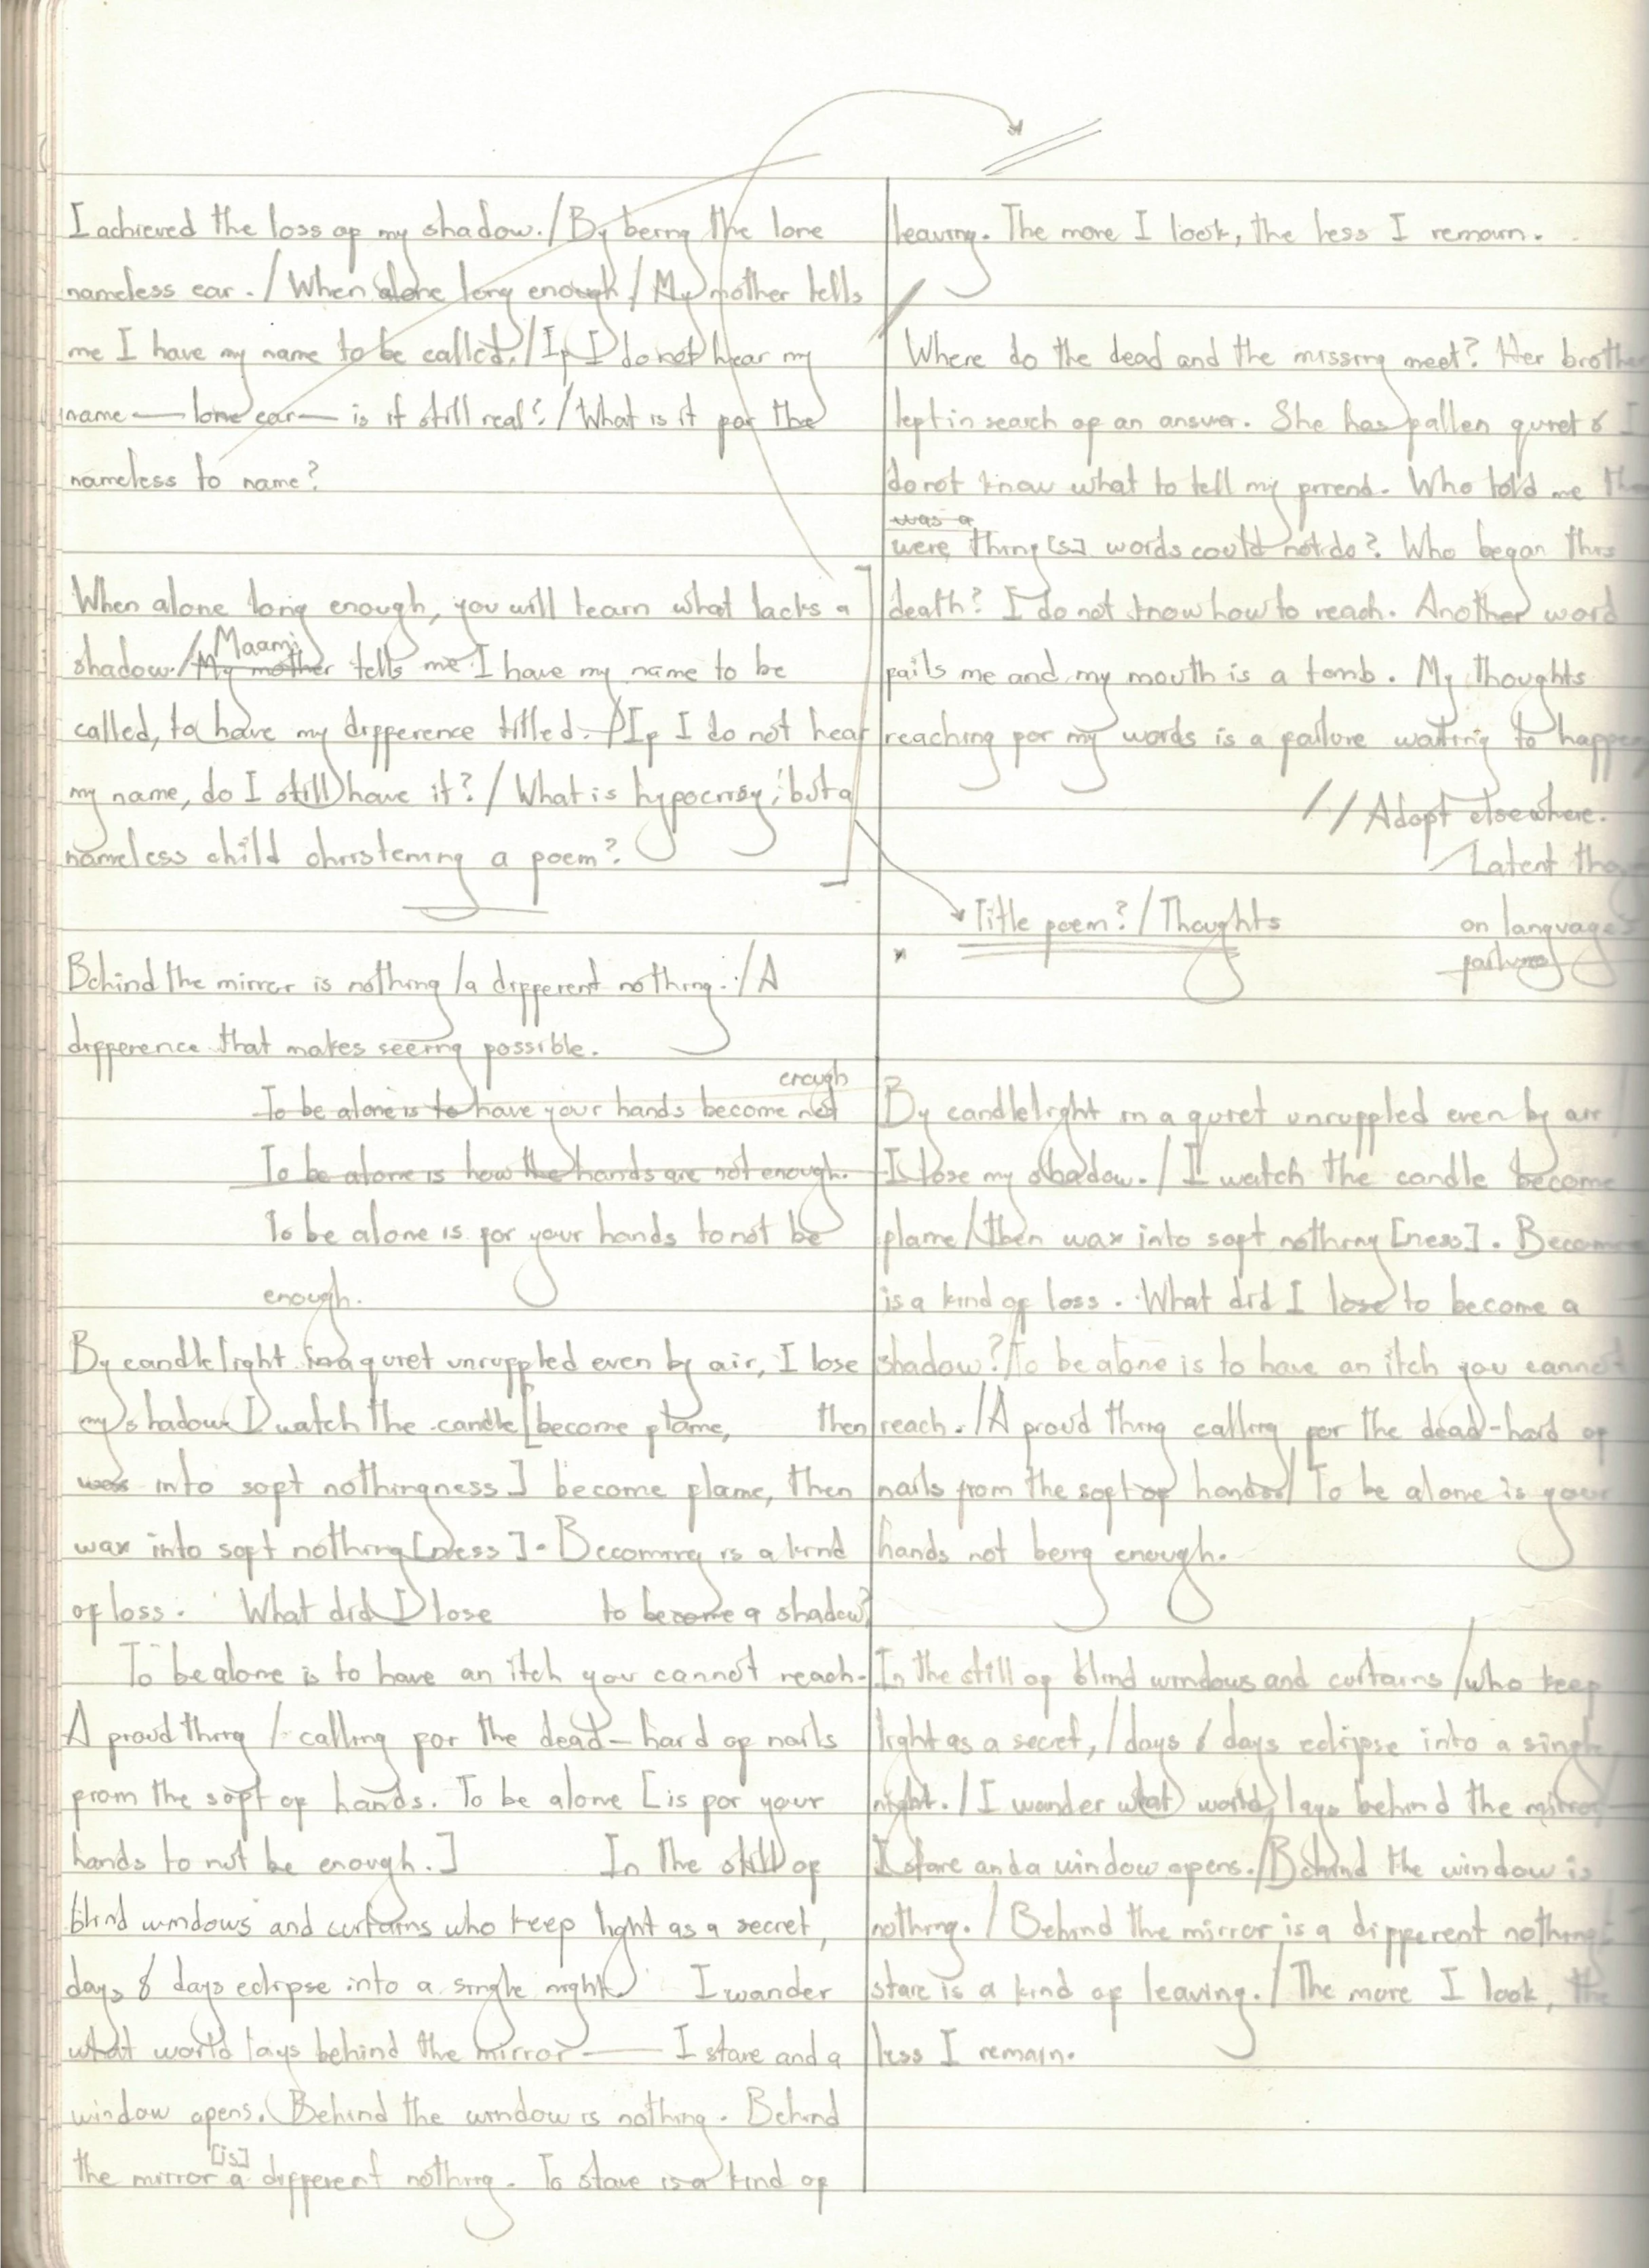 I achieved the loss of my shadow. / By being the lone
nameless ear. / When alone long enough / My mother tells
me I have my name to be called. / If I do not hear my
name — lone ear — is it still real? / What is it for the
nameless to name?
When alone long enough, you will learn what lacks a
Maami
shadow. / My mother tells me I have my name to be
called, to have my difference titled. / If I do not hear
my name, do I still have it? / What is hypocrisy, but a
nameless child christening a poem?
Behind the mirror is nothing / a different nothing. / A
difference that makes seeing possible.
enough
To be alone is to have your hands become not
To be alone is how the hands are not enough.
To be alone is for your hands to not be
enough.
By candlelight in a quiet unruppled even by air, I lose
my shadow. I watch the candle [become flame, then
wax into soft nothingness] become flame, then
wax into soft nothing[ness]. Becoming is a kind
of loss. What did I lose to become a shadow?
To be alone is to have an itch you cannot reach.
A proud thing / calling for the dead-hard of nails
from the soft of hands. To be alone [is for your
hands to not be enough.] In the still of
blind windows and curtains who keep light as a secret,
days & days eclipse into a single night. I wander
what world lays behind the mirror — I stare and a
window opens. Behind the window is nothing. Behind
[is]
the mirror a different nothing. To stare is a kind of
leaving. The more I look, the less I remain.
Where do the dead and the missing meet? Her brother
left in search of an answer. She has fallen quiet & I
do not know what to tell my friend. Who told me
was a
were thing[s] words could not do? Who began this
death? I do not know how to reach. Another word
fails me and my mouth is a tomb. My thoughts
reaching for my words is a failure waiting to happen
// Adopt elsewhere.
Latent
Title poem? / Thoughts on language
failures
By candlelight in a quiet unruppled even by air /
I lose my shadow. / I watch the candle become
flame / then wax into soft nothing[ness]. Becoming
is a kind of loss. What did I lose to become a
shadow? / To be alone is to have an itch you cannot
reach. / A proud thing calling for the dead-hard of
nails from the soft of hands / To be alone is your
hands not being enough.
In the still of blind windows and curtains / who keep
light as a secret, / days & days eclipse into a single
night. / I wander what world lays behind the mirror —
I stare and a window opens. / Behind the window is
nothing. / Behind the mirror is a different nothing.
stare is a kind of leaving. / The more I look, the
less I remain.